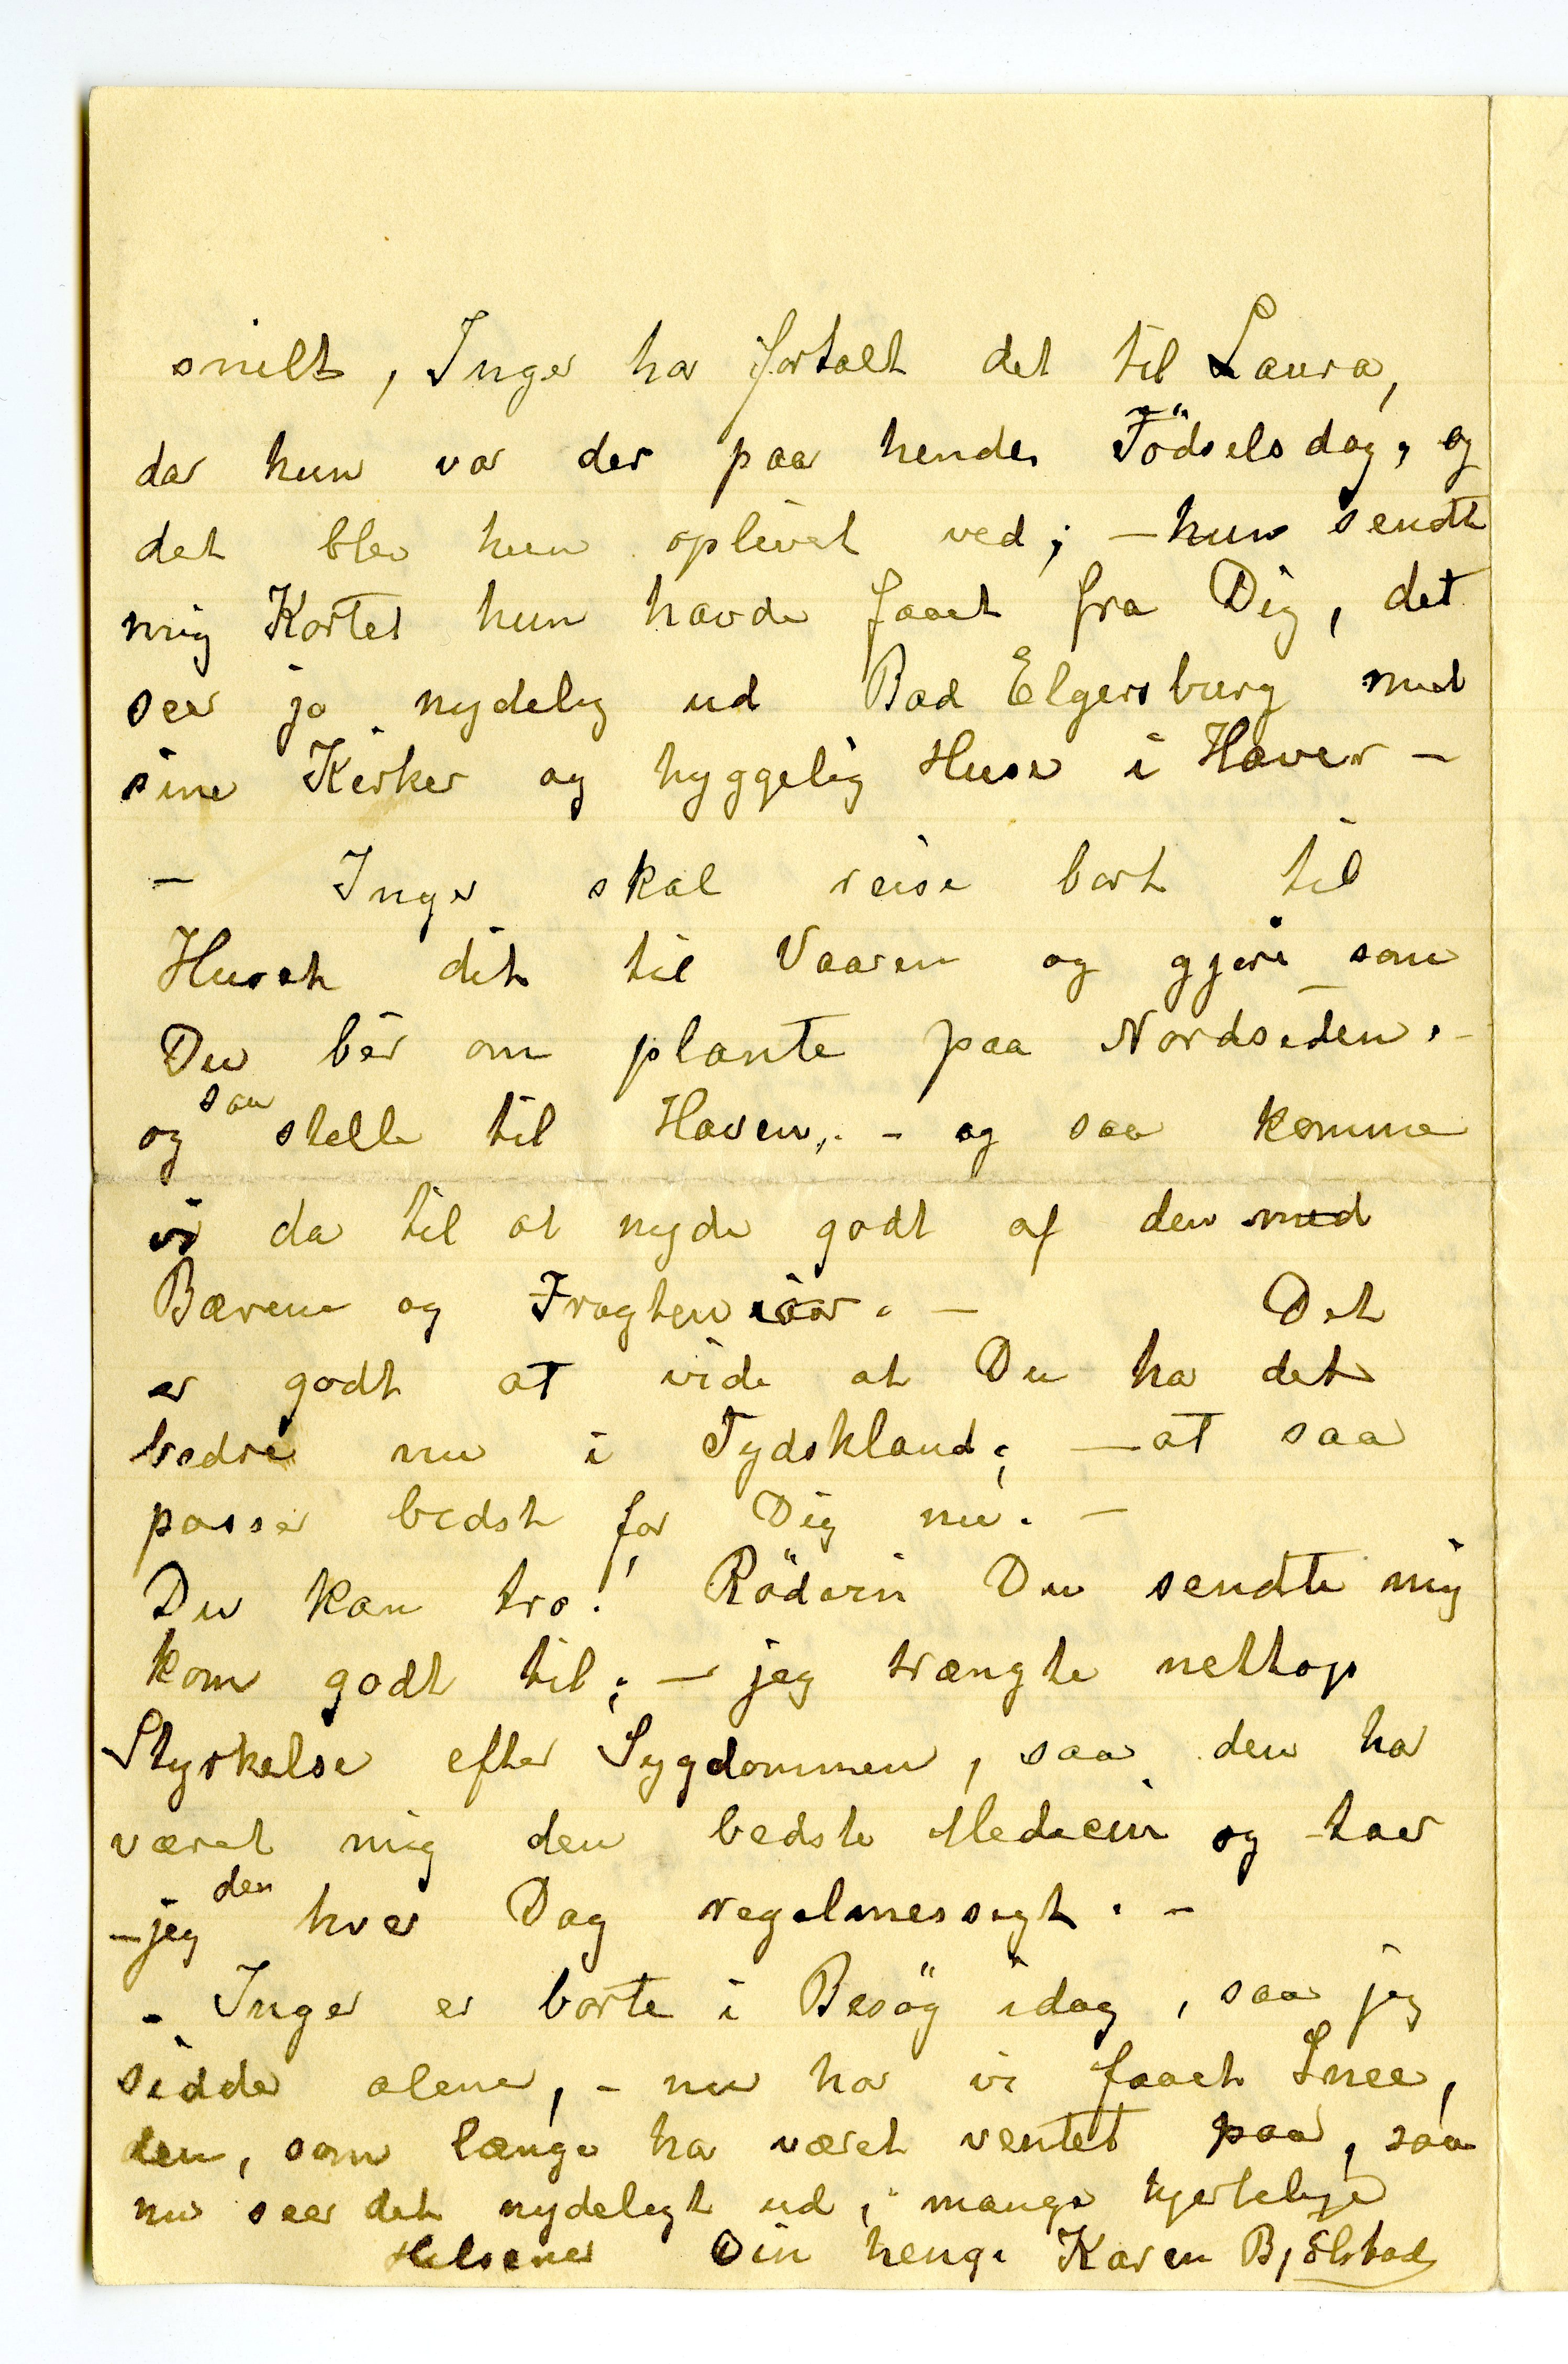 snilt, Inger har fortalt det til Laura,
dar hun var der paa hendes Födselsdag, og
det blev hun oplivet ved; – hun sendte
mig Kortet hun havde faaet fra Dig, det
seer jo nydelig ud Bad Elgersburg med
sine Kirker og hyggelig Huse i Haver –
– Inger skal reise bort til
Huset dit til Vaaren og gjøre som
Du ber om plante paa Nordsiden. –
og saa stelle til Haven, . – og saa komme
vi da til at nyde godt af den med
Bærene og Frugten iaar. – Det
er godt at vide at Du har det
bedre nu i Tydskland; – at saa
passer bedst for Dig nu. –
Du kan tro! Rödvin Du sendte mig
kom godt til; – jeg trængte nettop
Styrkelse efter Sygdommen, saa den har
været mig den bedste Medicin og taer
– jeg den hver Dag regelmessigt. –
– Inger er borte i Besög idag, saa jeg
sidder alene, – nu har vi faaet Snee,
den, som længe har været ventet paa, saa
nu seer det nydeligt ud; mange hjertelige
Hilsener Din hengi Karen Bjölstad